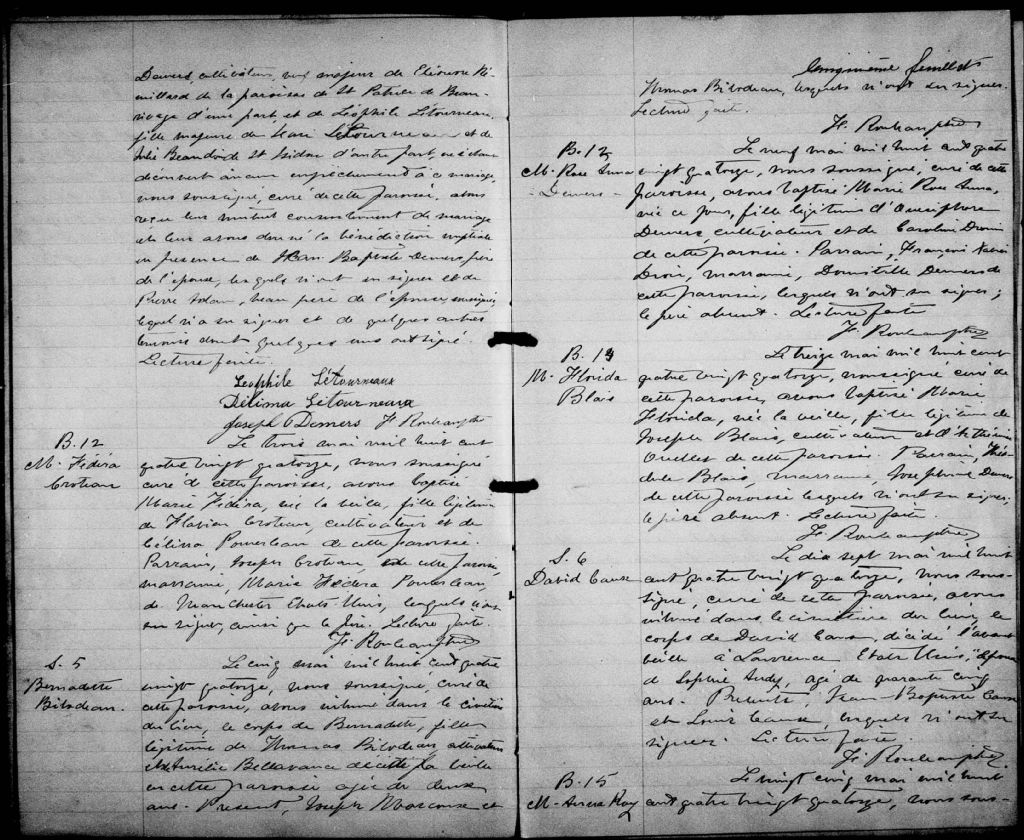 Demers, cultivateur, veuf majeur de
de la paroisse de St Patrice de Beau-
rivage d'une part, et de Léophile Létourneau,
fille majeure de Létourneau et de
Julie Beaudoin de St Isidore d'autre part, ne s'étant
découvert aucun empêchement à ce mariage,
nous soussigné, curé de cette paroisse, avons
reçu leur mutuel consentement de mariage
et leur avons donné la bénédiction nuptiale
en presence de Jean-Baptiste Demers, père
de l'epoux, lesquels n'ont su signer et de
Pierre beau père de l'epouse, soussigné,
lequel n'a su signer et de quelques autres
témoins dont quelques uns ont signé.
Lecture faite.
Léophile Létourneaux
Délima Létourneaux
Joseph O Demers
B. 12
M. Fédéra
Croteau
Le trois mai mil huit cent
quatre vingt quatorze, nous soussigné
curé de cette paroisse, avons baptisé
Marie Fédéra, née la veille, fille légitime
de Flavien Croteau, cultivateur et de
Célina Pomerleau de cette paroisse.
Parrain, Joseph Croteau, de cette paroisse,
marraine, Marie Fédéra Pomerleau,
de Manchester Etats Unis, lesquels n'ont
su signer, ainsi que le père. Lecture faite.
S. 5
Bernadette
Bilodeau.
Le cinq mai mil huit cent quatre
vingt quatorze, nous soussigné, curé de
cette paroisse, avons inhumé dans le cimetière
du lieu, le corps de Bernadette, fille
légitime de Thomas Bilodeau, cultivateur
et d'Aurélie Bellavance décédée la veille
en cette paroisse agée de deux
ans. Présent, Joseph et
Cinquième feuillet
Thomas Bilodeau, lesquels n'ont su signer.
Lecture faite.
B. 13
M. Rose Anna
Demers
Le neuf mai mil huit cent quatre
vingt quatorze, nous soussigné, curé de cette
paroisse, avons baptisé Marie Rose Anna,
née ce jour, fille légitime d'Onesiphore
Demers, cultivateur et de Caroline Drouin
de cette paroisse. Parrain, François Xavier
marraine, Domitille Demers de
cette paroisse, lesquels n'ont su signer;
le père absent. Lecture faite
B. 14
M. Florida
Blais
Le treize mai mil huit cent
quatre vingt quatorze, soussigné curé de
cette paroisse, avons baptisé Marie
Florida, née la veille, fille légitime de
Joseph Blais, cultivateur et
Ouellet de cette paroisse. Parrain,
Blais, marraine, Josephine Demers
de cette paroisse lesquels n'ont su signer;
le père absent. Lecture faite.
S. 6
David
Le dix sept mai mil huit
cent quatre vingt quatorze, nous sous-
signé, curé de cette paroisse, avons
inhumé dans le cimetière du lieu, le
corps de David décédé l'avant
veille à Lawrence Etats Unis,
d Sophie agé de quarante cinq
ans. Présents, Jean-Baptiste
et Louis lesquels n'ont su
signer. Lecture faite.
B. 15
M. Roy
Le vingt cinq mai mil huit
cent quatre vingt quatorze, nous sous-